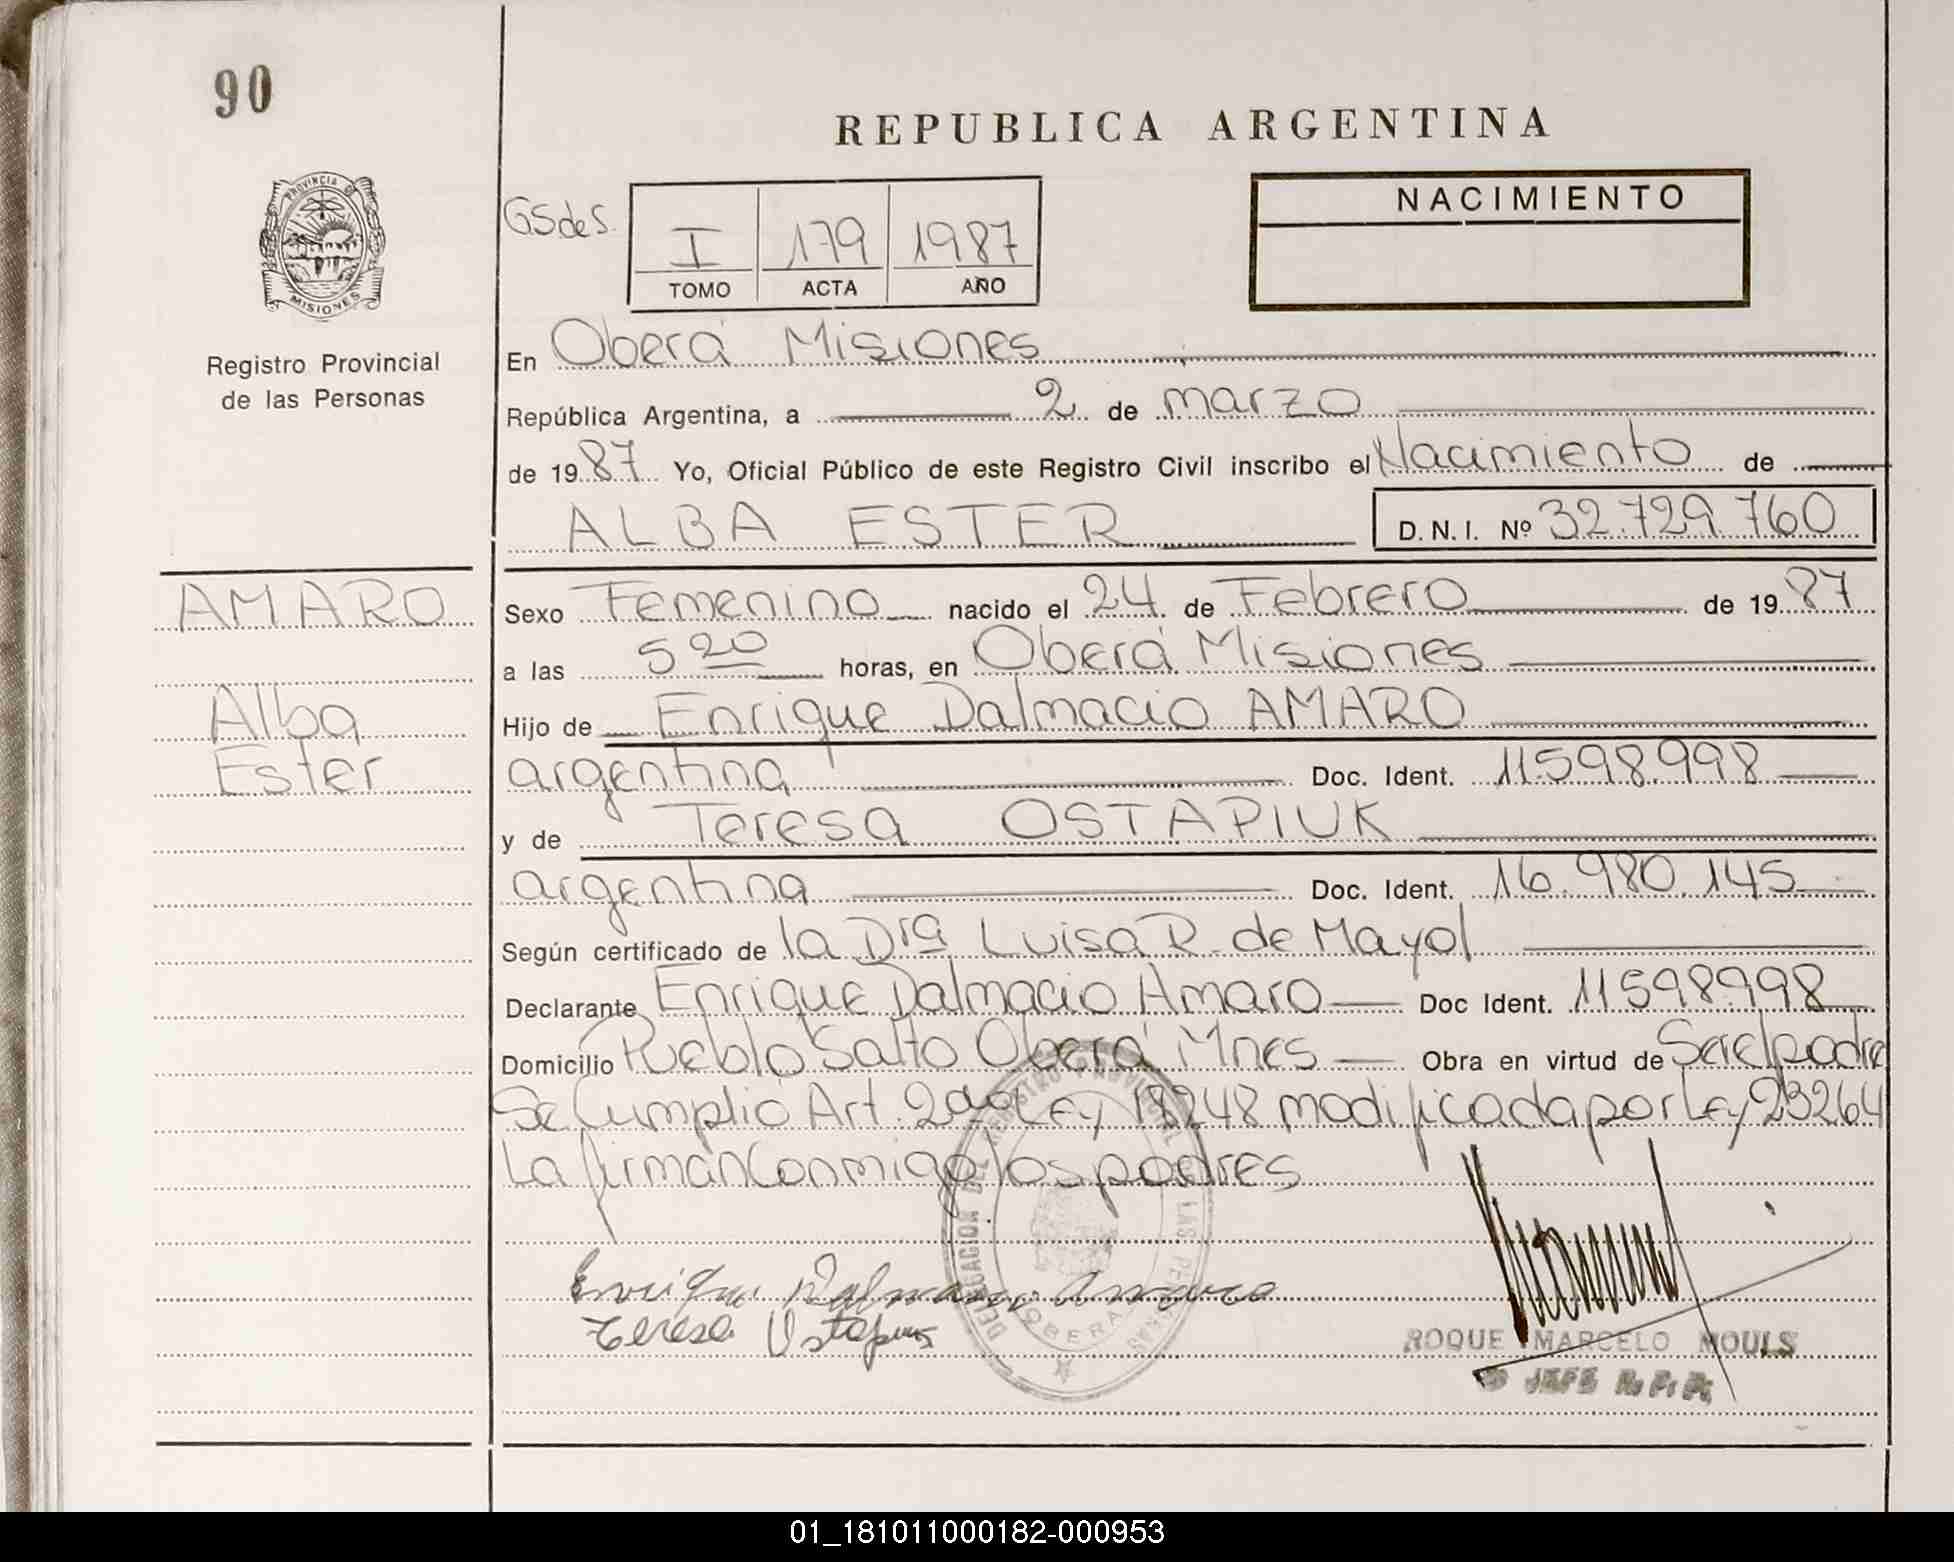 90
REPUBLICA ARGENTINA
PROVINCIA DE
MISIONES
Registro Provincial
de las Personas
GSdeS.
I 179 1987
TOMO ACTA AÑO
NACIMIENTO
En Oberá Misiones
República Argentina, a 2 de marzo
de 1987 Yo, Oficial Público de este Registro Civil inscribo el Nacimiento de
ALBA ESTER D.N.I. Nº 32.729.760
AMARO
Alba
Ester
Sexo Femenino nacido el 24 de Febrero de 1987
a las 5 20 horas, en Oberá Misiones
Hijo de Enrique Dalmacio AMARO
argentina Doc. Ident. 11.598.998
y de Teresa OSTAPIUK
argentina Doc. Ident. 16.980.145
Según certificado de la Dra Luisa R. de Mayol
Declarante Enrique Dalmacio Amaro Doc Ident. 11598998
Domicilio Pueblo Salto Oberá Mnes Obra en virtud de Ser el padre
Se Cumplio Art. 2do Ley 18248 modificada por Ley 23264
La firman Conmigo los padres
DELEGACION DEL REGISTRO PROVINCIAL DE LAS PERSONAS
OBERA
Enrique Dalmacio Amaro
Teresa Ostapiuk
ROQUE MARCELO MOULS
JEFE R. P. P.
01_181011000182-000953